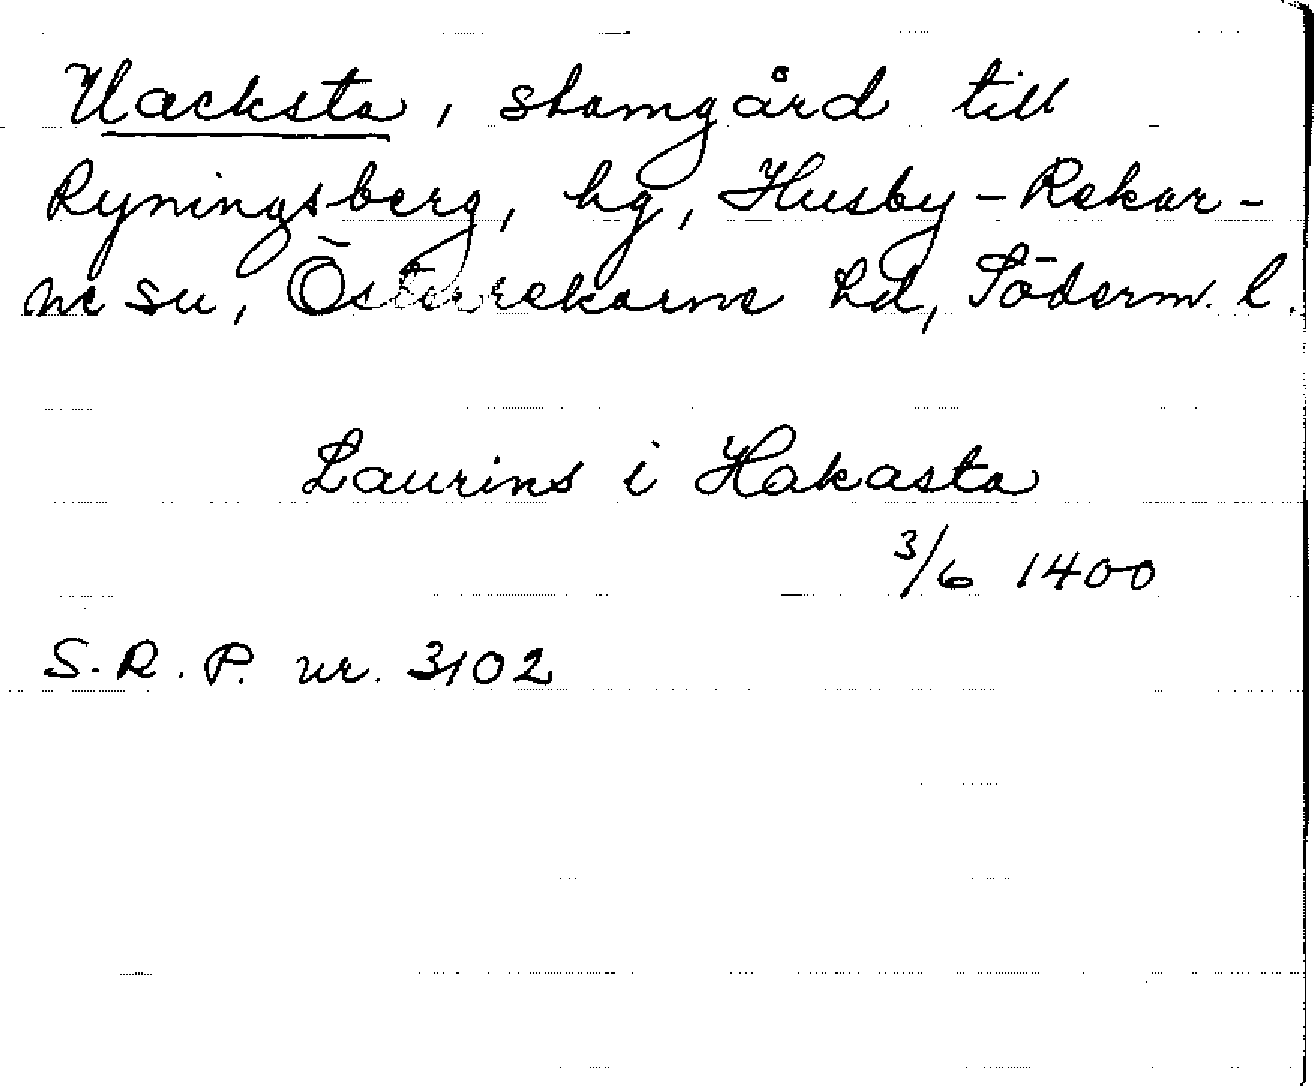 Hacksta, stamgård till
Ryningsberg, hg, Husby-Rekar-
ne sn, Österrekarne hd, Söderm. l.
Laurins i Hakasta
3/6 1400
S.R.P. nr. 3102